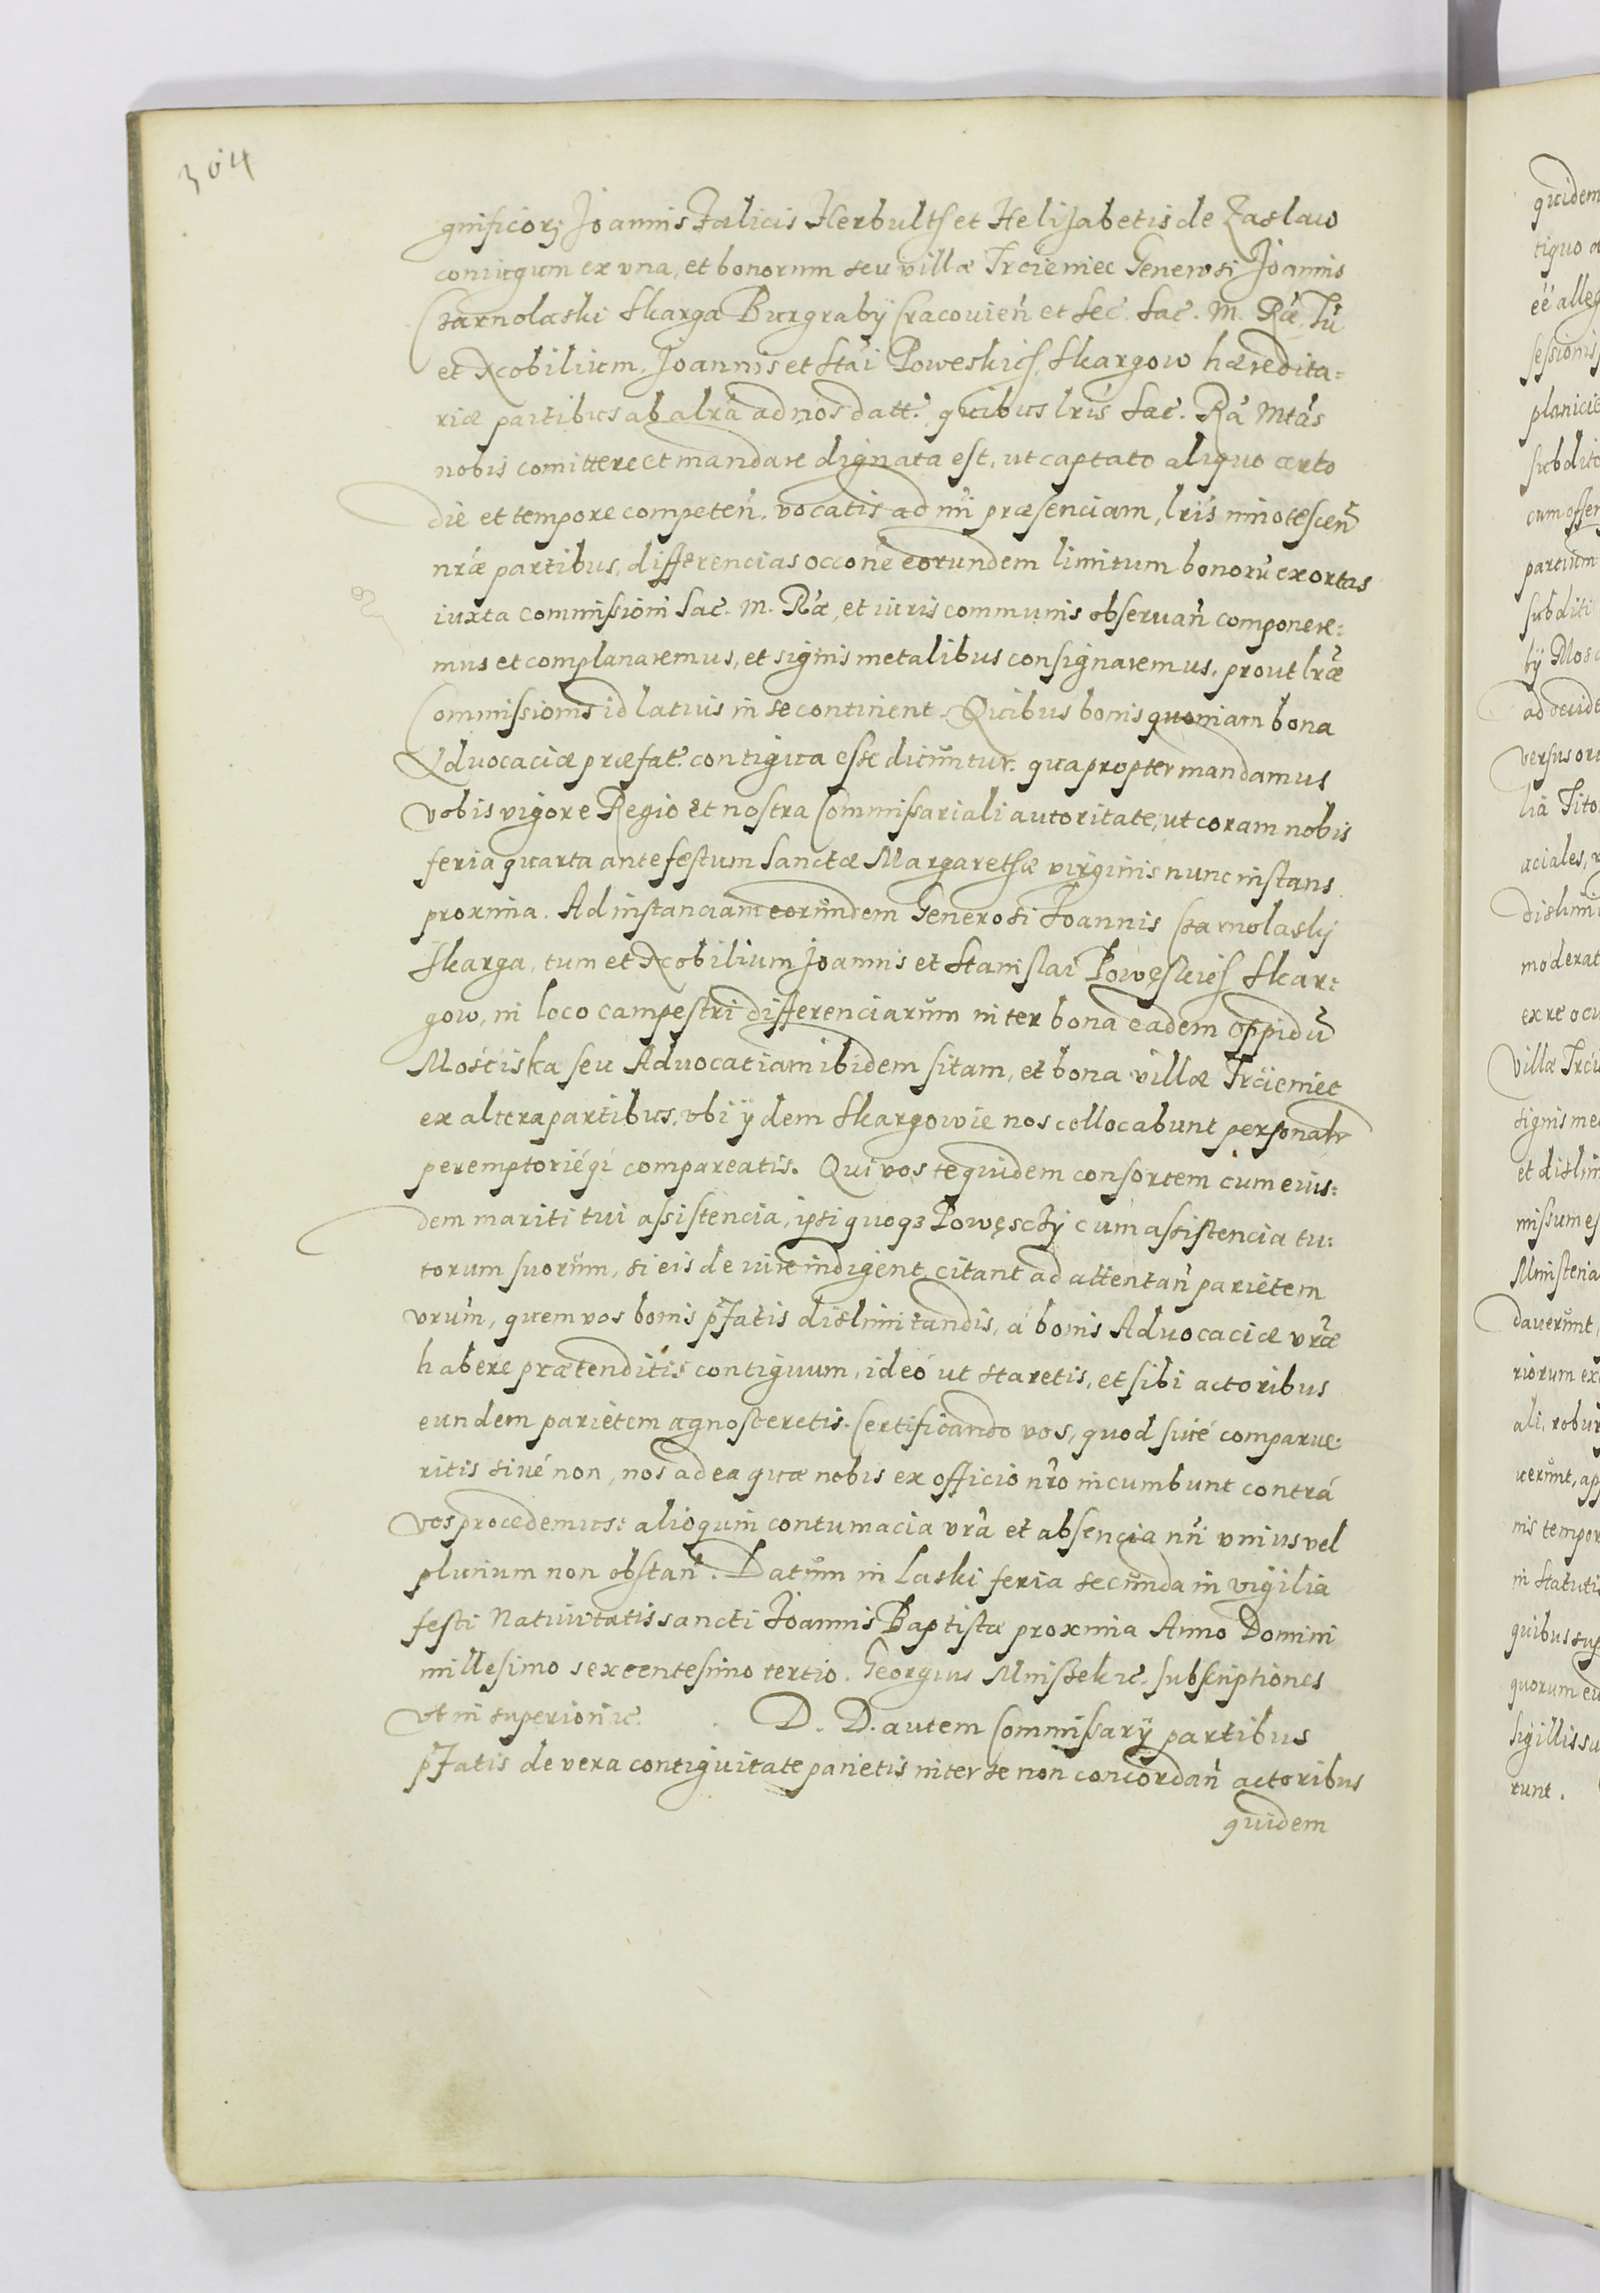 304
gnificorz Joannis Fælicis Herbultħ et Helijabetis de Zaslaw
coniugum ex vna, et bonorum seu villæ Trcieniec Generosi Joannis
Czarnolaski Skarga Burgrabÿ Cracouień et Sec. Sac. M. Ræ. Tű
et Nobilium Joannis et Stăi Poweskich Skargow hæredita=
riæ partibus ab alrã ad nos datt. quibus lris Sac. Rã Mtãs
nobis comittere et mandare dignata est, ut captato aliquo certo
die et tempore competeń. vocatis ad nri præsenciam, lris innotesceń
nræ partibus, differencias occone eorundem limitum bonorũ exortas
iuxta commissioni Sac. M. Ræ, et iuris communis obseruań componere=
mus et complanaremus, et signis metalibus consignaremus, prout lræ
Commissionis id latius in se continent. Quibus bonis quoniam bona
Aduocaciæ præfat. contigua esse dicũntur. quapropter mandamus
vobis vigore Regio et nostra Commissariali autoritate, ut coram nobis
feria quarta ante festum Sanctæ Margarethæ virginis nunc instans
proxima. Ad instanciam eorũndem Generosi Joannis Czarnolasky
Skarga, tum et Nobilium Joannis et Stanislai Powęskich Skar=
gow, in loco campestri differenciarũm inter bona eadem oppidũ
Mościska seu Aduocatiam ibidem sitam, et bona villæ Trcieniec
ex altera partibus, vbi ÿdem Skargowie nos collocabunt personalr
peremptorieqi compareatis. Qui vos te quidem consortem cum eius=
dem mariti tui assistencia, ipsi quoqz Powęscÿ cum assistencia tu=
torum suorũm, si eis de iure indigent, citant ad attentań parietem
vrũm, quem vos bonis pfatis dislimitandis, á bonis Aduocaciæ vræ
habere prætenditis contiguum, ideó ut staretis, et sibi actoribus
eundem parietem agnosceretis. Certificando vos, quod siué comparue=
ritis siué non, nos ad ea quæ nobis ex officio nro incumbunt contrá
vos procedemus: alioquin contumacia vrã et absencia nri vnius vel
plurium non obstań. Datũm in Laski feria secũnda in vigilia
festi Natiuitatis sancti Joannis Baptistæ proxima Anno Domini
millesimo sexcentesimo tertio. Georgius Mnisżek ic. Subscriptiones
vt in superiori ic. D. D. autem Commissarÿ partibus
pfatis de vera contiguitate parietis inter se non concordań actoribus
quidem